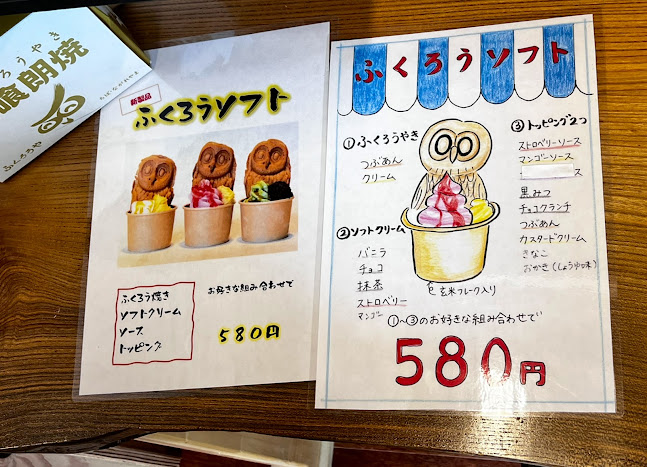 ふくろうやき
喰朗焼
ふくろうや
新製品
ふくろうソフト
ふくろう焼き
ソフトクリーム
ソース
トッピング
お好きな組み合わせで
580円
ふくろうソフト
①ふくろうやき
つぶあん
クリーム
②ソフトクリーム
バニラ
チョコ
抹茶
ストロベリー
マンゴー
③トッピング2つ
ストロベリーソース
マンゴーソース
ス
黒みつ
チョコクランチ
つぶあん
カスタードクリーム
きなこ
おかき(しょうゆ味)
玄米フレーク入り
①~③のお好きな組み合わせで
580円